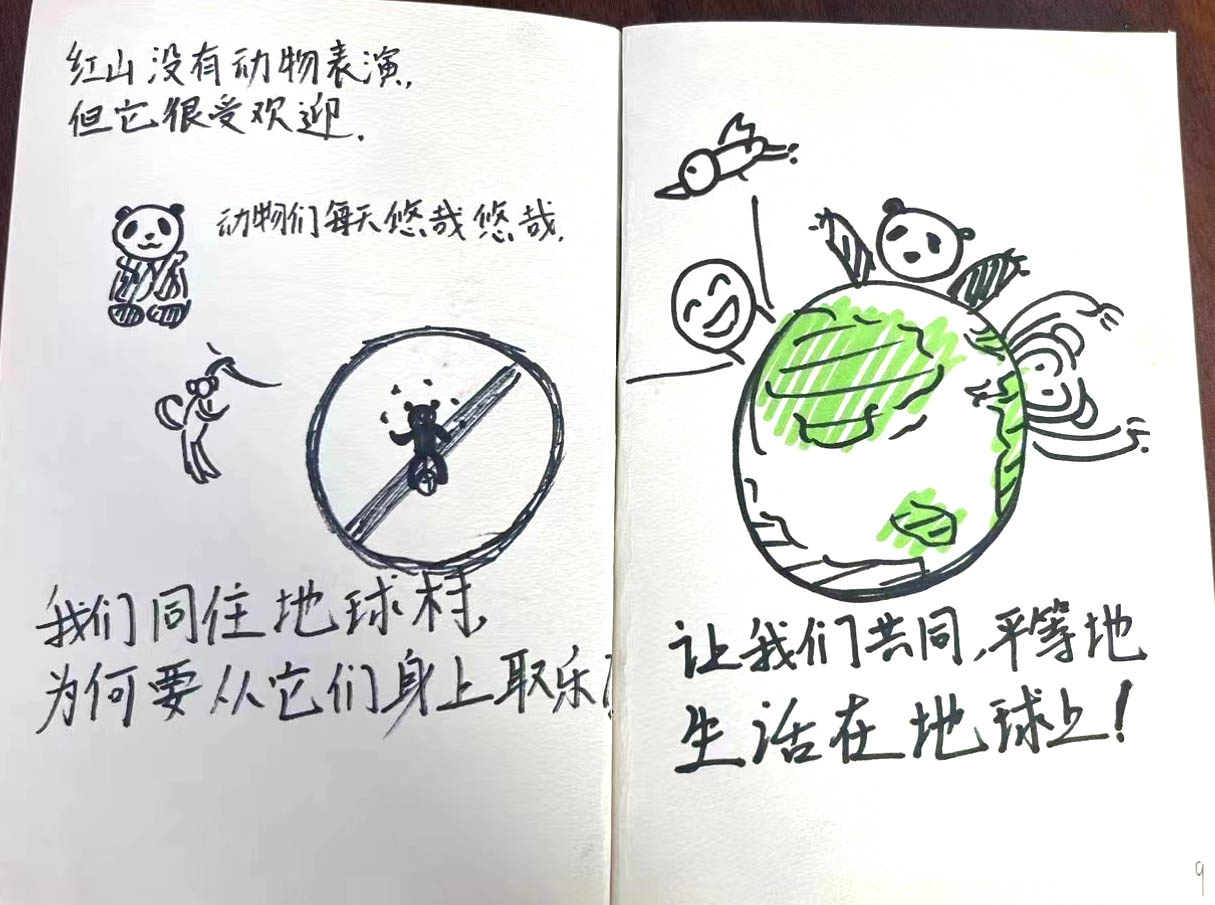 红山没有动物表演,
但它很受欢迎.
动物们每天悠哉悠哉.
我们同住地球村,
为何要从它们身上取乐
让我们共同,平等地
生活在地球上!
9